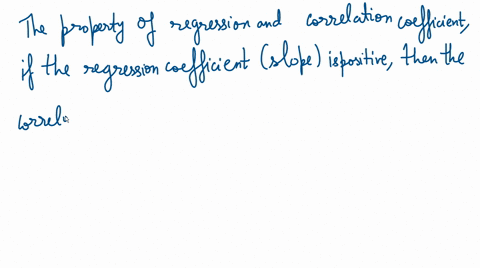 The property of regression and correlation coefficient,
if the regression coefficient (slope) is positive, then the
correl